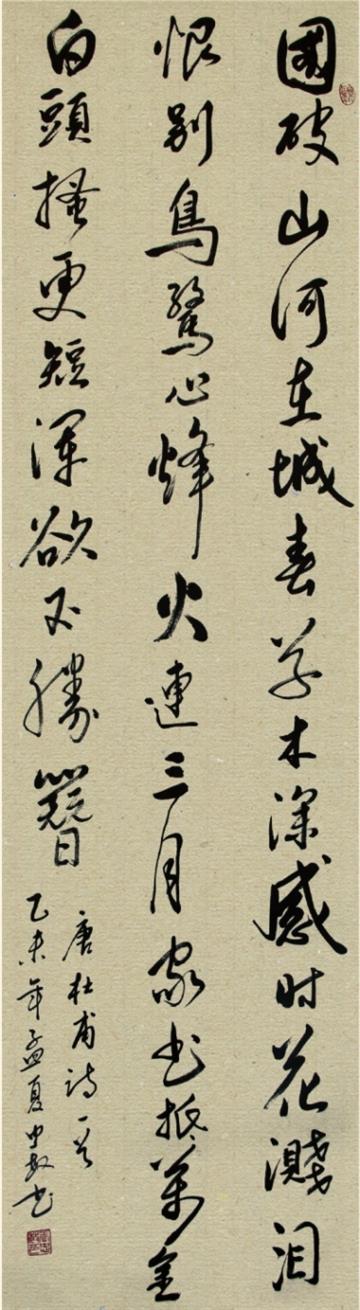 國破山河在城春草木深感时花濺泪
恨别鳥驚心烽火連三月家书抵萬金
白頭搔更短渾欲不勝簪
唐杜甫诗一首
乙未年孟夏
书